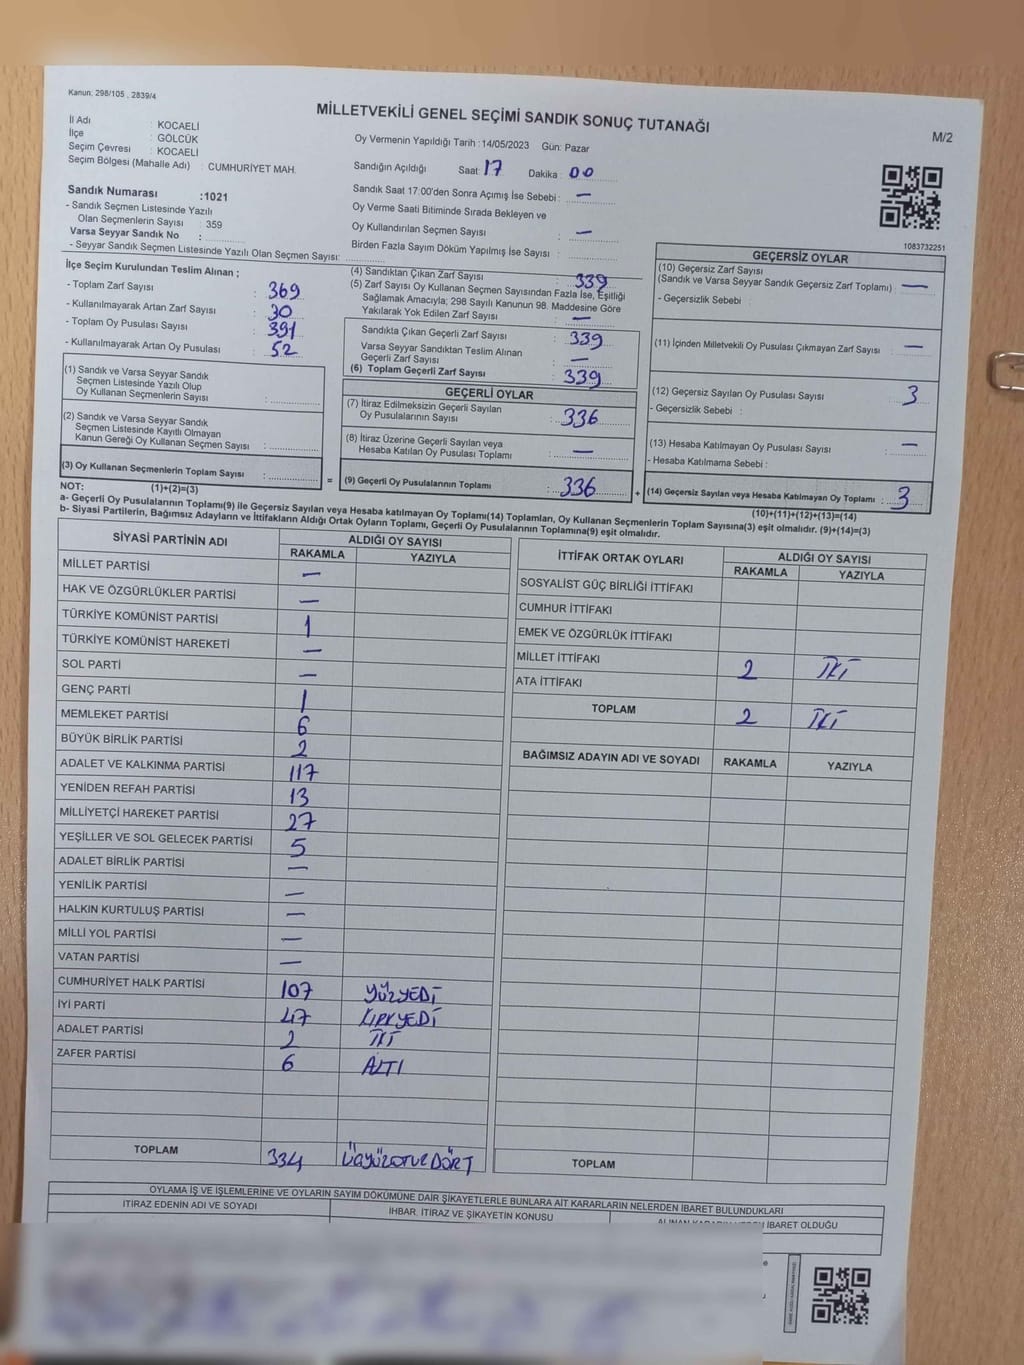 Kanun, 298/105 , 2839/4
MİLLETVEKİLİ GENEL SEÇİMİ SANDIK SONUÇ TUTANAĞI
M/2
İl Adı : KOCAELİ
İlçe : GÖLCÜK
Seçim Çevresi : KOCAELİ
Seçim Bölgesi (Mahalle Adı) : CUMHURİYET MAH.
Oy Vermenin Yapıldığı Tarih : 14/05/2023 Gün: Pazar
Sandığın Açıldığı Saat : 17 Dakika : 00
Sandık Saat 17:00'den Sonra Açımış İse Sebebi : —
Oy Verme Saati Bitiminde Sırada Bekleyen ve
Oy Kullandırılan Seçmen Sayısı : —
Birden Fazla Sayım Döküm Yapılmış İse Sayısı :
Sandık Numarası : 1021
- Sandık Seçmen Listesinde Yazılı
Olan Seçmenlerin Sayısı : 359
Varsa Seyyar Sandık No :
- Seyyar Sandık Seçmen Listesinde Yazılı Olan Seçmen Sayısı:
1083732251
İlçe Seçim Kurulundan Teslim Alınan ;
- Toplam Zarf Sayısı : 369
- Kullanılmayarak Artan Zarf Sayısı : 30
- Toplam Oy Pusulası Sayısı : 391
- Kullanılmayarak Artan Oy Pusulası : 52
(1) Sandık ve Varsa Seyyar Sandık
Seçmen Listesinde Yazılı Olup
Oy Kullanan Seçmenlerin Sayısı :
(2) Sandık ve Varsa Seyyar Sandık
Seçmen Listesinde Kayıtlı Olmayan
Kanun Gereği Oy Kullanan Seçmen Sayısı :
(3) Oy Kullanan Seçmenlerin Toplam Sayısı :
(4) Sandıktan Çıkan Zarf Sayısı : 339
(5) Zarf Sayısı Oy Kullanan Seçmen Sayısından Fazla İse, Eşitliği
Sağlamak Amacıyla; 298 Sayılı Kanunun 98. Maddesine Göre
Yakılarak Yok Edilen Zarf Sayısı : —
Sandıkta Çıkan Geçerli Zarf Sayısı : 339
Varsa Seyyar Sandıktan Teslim Alınan
Geçerli Zarf Sayısı : —
(6) Toplam Geçerli Zarf Sayısı : 339
GEÇERLİ OYLAR
(7) İtiraz Edilmeksizin Geçerli Sayılan
Oy Pusulalarının Sayısı : 336
(8) İtiraz Üzerine Geçerli Sayılan veya
Hesaba Katılan Oy Pusulası Toplamı : —
= (9) Geçerli Oy Pusulalarının Toplamı : 336
GEÇERSİZ OYLAR
(10) Geçersiz Zarf Sayısı
(Sandık ve Varsa Seyyar Sandık Geçersiz Zarf Toplamı) : —
- Geçersizlik Sebebi :
(11) İçinden Milletvekili Oy Pusulası Çıkmayan Zarf Sayısı : —
(12) Geçersiz Sayılan Oy Pusulası Sayısı : 3
- Geçersizlik Sebebi :
(13) Hesaba Katılmayan Oy Pusulası Sayısı : —
- Hesaba Katılmama Sebebi :
+ (14) Geçersiz Sayılan veya Hesaba Katılmayan Oy Toplamı : 3
NOT: (1)+(2)=(3)
(10)+(11)+(12)+(13)=(14)
a- Geçerli Oy Pusulalarının Toplamı(9) ile Geçersiz Sayılan veya Hesaba katılmayan Oy Toplamı(14) Toplamları, Oy Kullanan Seçmenlerin Toplam Sayısına(3) eşit olmalıdır. (9)+(14)=(3)
b- Siyasi Partilerin, Bağımsız Adayların ve İttifakların Aldığı Ortak Oyların Toplamı, Geçerli Oy Pusulalarının Toplamına(9) eşit olmalıdır.
SİYASİ PARTİNİN ADI ALDIĞI OY SAYISI
RAKAMLA YAZIYLA
MİLLET PARTİSİ —
HAK VE ÖZGÜRLÜKLER PARTİSİ —
TÜRKİYE KOMÜNİST PARTİSİ 1
TÜRKİYE KOMÜNİST HAREKETİ —
SOL PARTİ —
GENÇ PARTİ 1
MEMLEKET PARTİSİ 6
BÜYÜK BİRLİK PARTİSİ 2
ADALET VE KALKINMA PARTİSİ 117
YENİDEN REFAH PARTİSİ 13
MİLLİYETÇİ HAREKET PARTİSİ 27
YEŞİLLER VE SOL GELECEK PARTİSİ 5
ADALET BİRLİK PARTİSİ —
YENİLİK PARTİSİ —
HALKIN KURTULUŞ PARTİSİ —
MİLLİ YOL PARTİSİ —
VATAN PARTİSİ —
CUMHURİYET HALK PARTİSİ 107 YÜZYEDİ
İYİ PARTİ 47 KIRKYEDİ
ADALET PARTİSİ 2 İKİ
ZAFER PARTİSİ 6 ALTI
TOPLAM 334 ÜÇYÜZOTUZDÖRT
İTTİFAK ORTAK OYLARI ALDIĞI OY SAYISI
RAKAMLA YAZIYLA
SOSYALİST GÜÇ BİRLİĞİ İTTİFAKI
CUMHUR İTTİFAKI
EMEK VE ÖZGÜRLÜK İTTİFAKI
MİLLET İTTİFAKI 2 İKİ
ATA İTTİFAKI
TOPLAM 2 İKİ
BAĞIMSIZ ADAYIN ADI VE SOYADI RAKAMLA YAZIYLA
TOPLAM
OYLAMA İŞ VE İŞLEMLERİNE VE OYLARIN SAYIM DÖKÜMÜNE DAİR ŞİKAYETLERLE BUNLARA AİT KARARLARIN NELERDEN İBARET BULUNDUKLARI
İTİRAZ EDENİN ADI VE SOYADI İHBAR, İTİRAZ VE ŞİKAYETİN KONUSU ALINAN KARARIN NEYDEN İBARET OLDUĞU